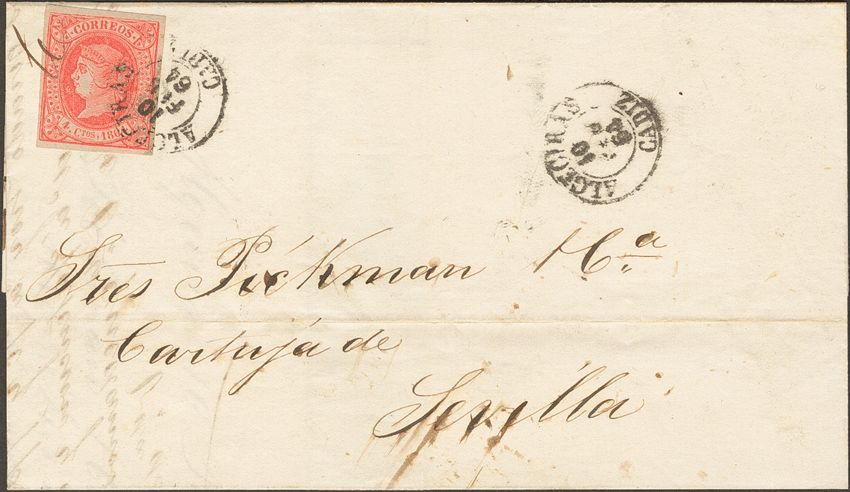 CORREOS
4 Ctos 1864
ALGECIRAS
10
64
CADIZ
ALGECIRAS
10
64
CADIZ
Sres Pickman Ca
Cartuja de
Sevilla